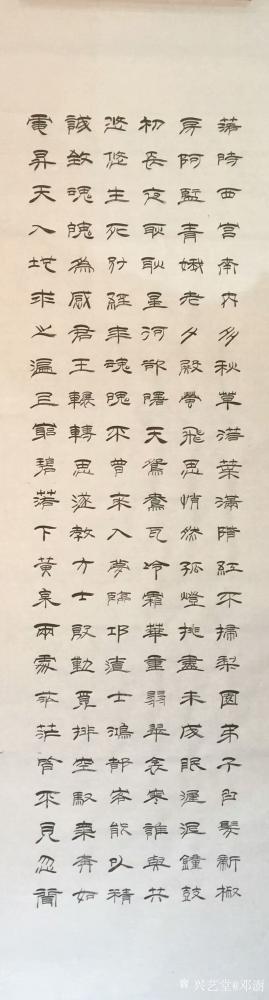 落時西宮南内多秋草落葉滿階紅不掃梨園弟子白髮新椒
房阿監青娥老夕殿螢飛思悄然孤燈挑盡未成眠遲遲鐘鼓
初長夜耿耿星河欲曙天鴛鴦瓦冷霜華重翡翠衾寒誰與共
悠悠生死別經年魂魄不曾來入夢臨邛道士鴻都客能以精
誠致魂魄為感君王輾轉思遂教方士殷勤覓排空馭氣奔如
電昇天入地求之遍上窮碧落下黃泉兩處茫茫皆不見忽聞
兴艺堂@邓澍